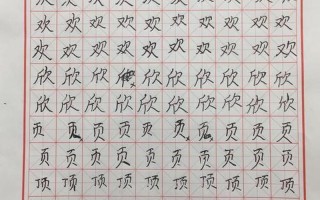 欢欢欢欢欢欢欢欢欢欢
欢欢欢欢欢欢欢欢欢欢
欢欢欢欢欢欢欢欢欢欢
欣欣欣欣欣欣欣欣欣
欣欣欣欣欣欣欣欣欣欣
页页页页页页页页
页页页页页页页页页页
顶顶顶顶顶顶顶顶顶顶